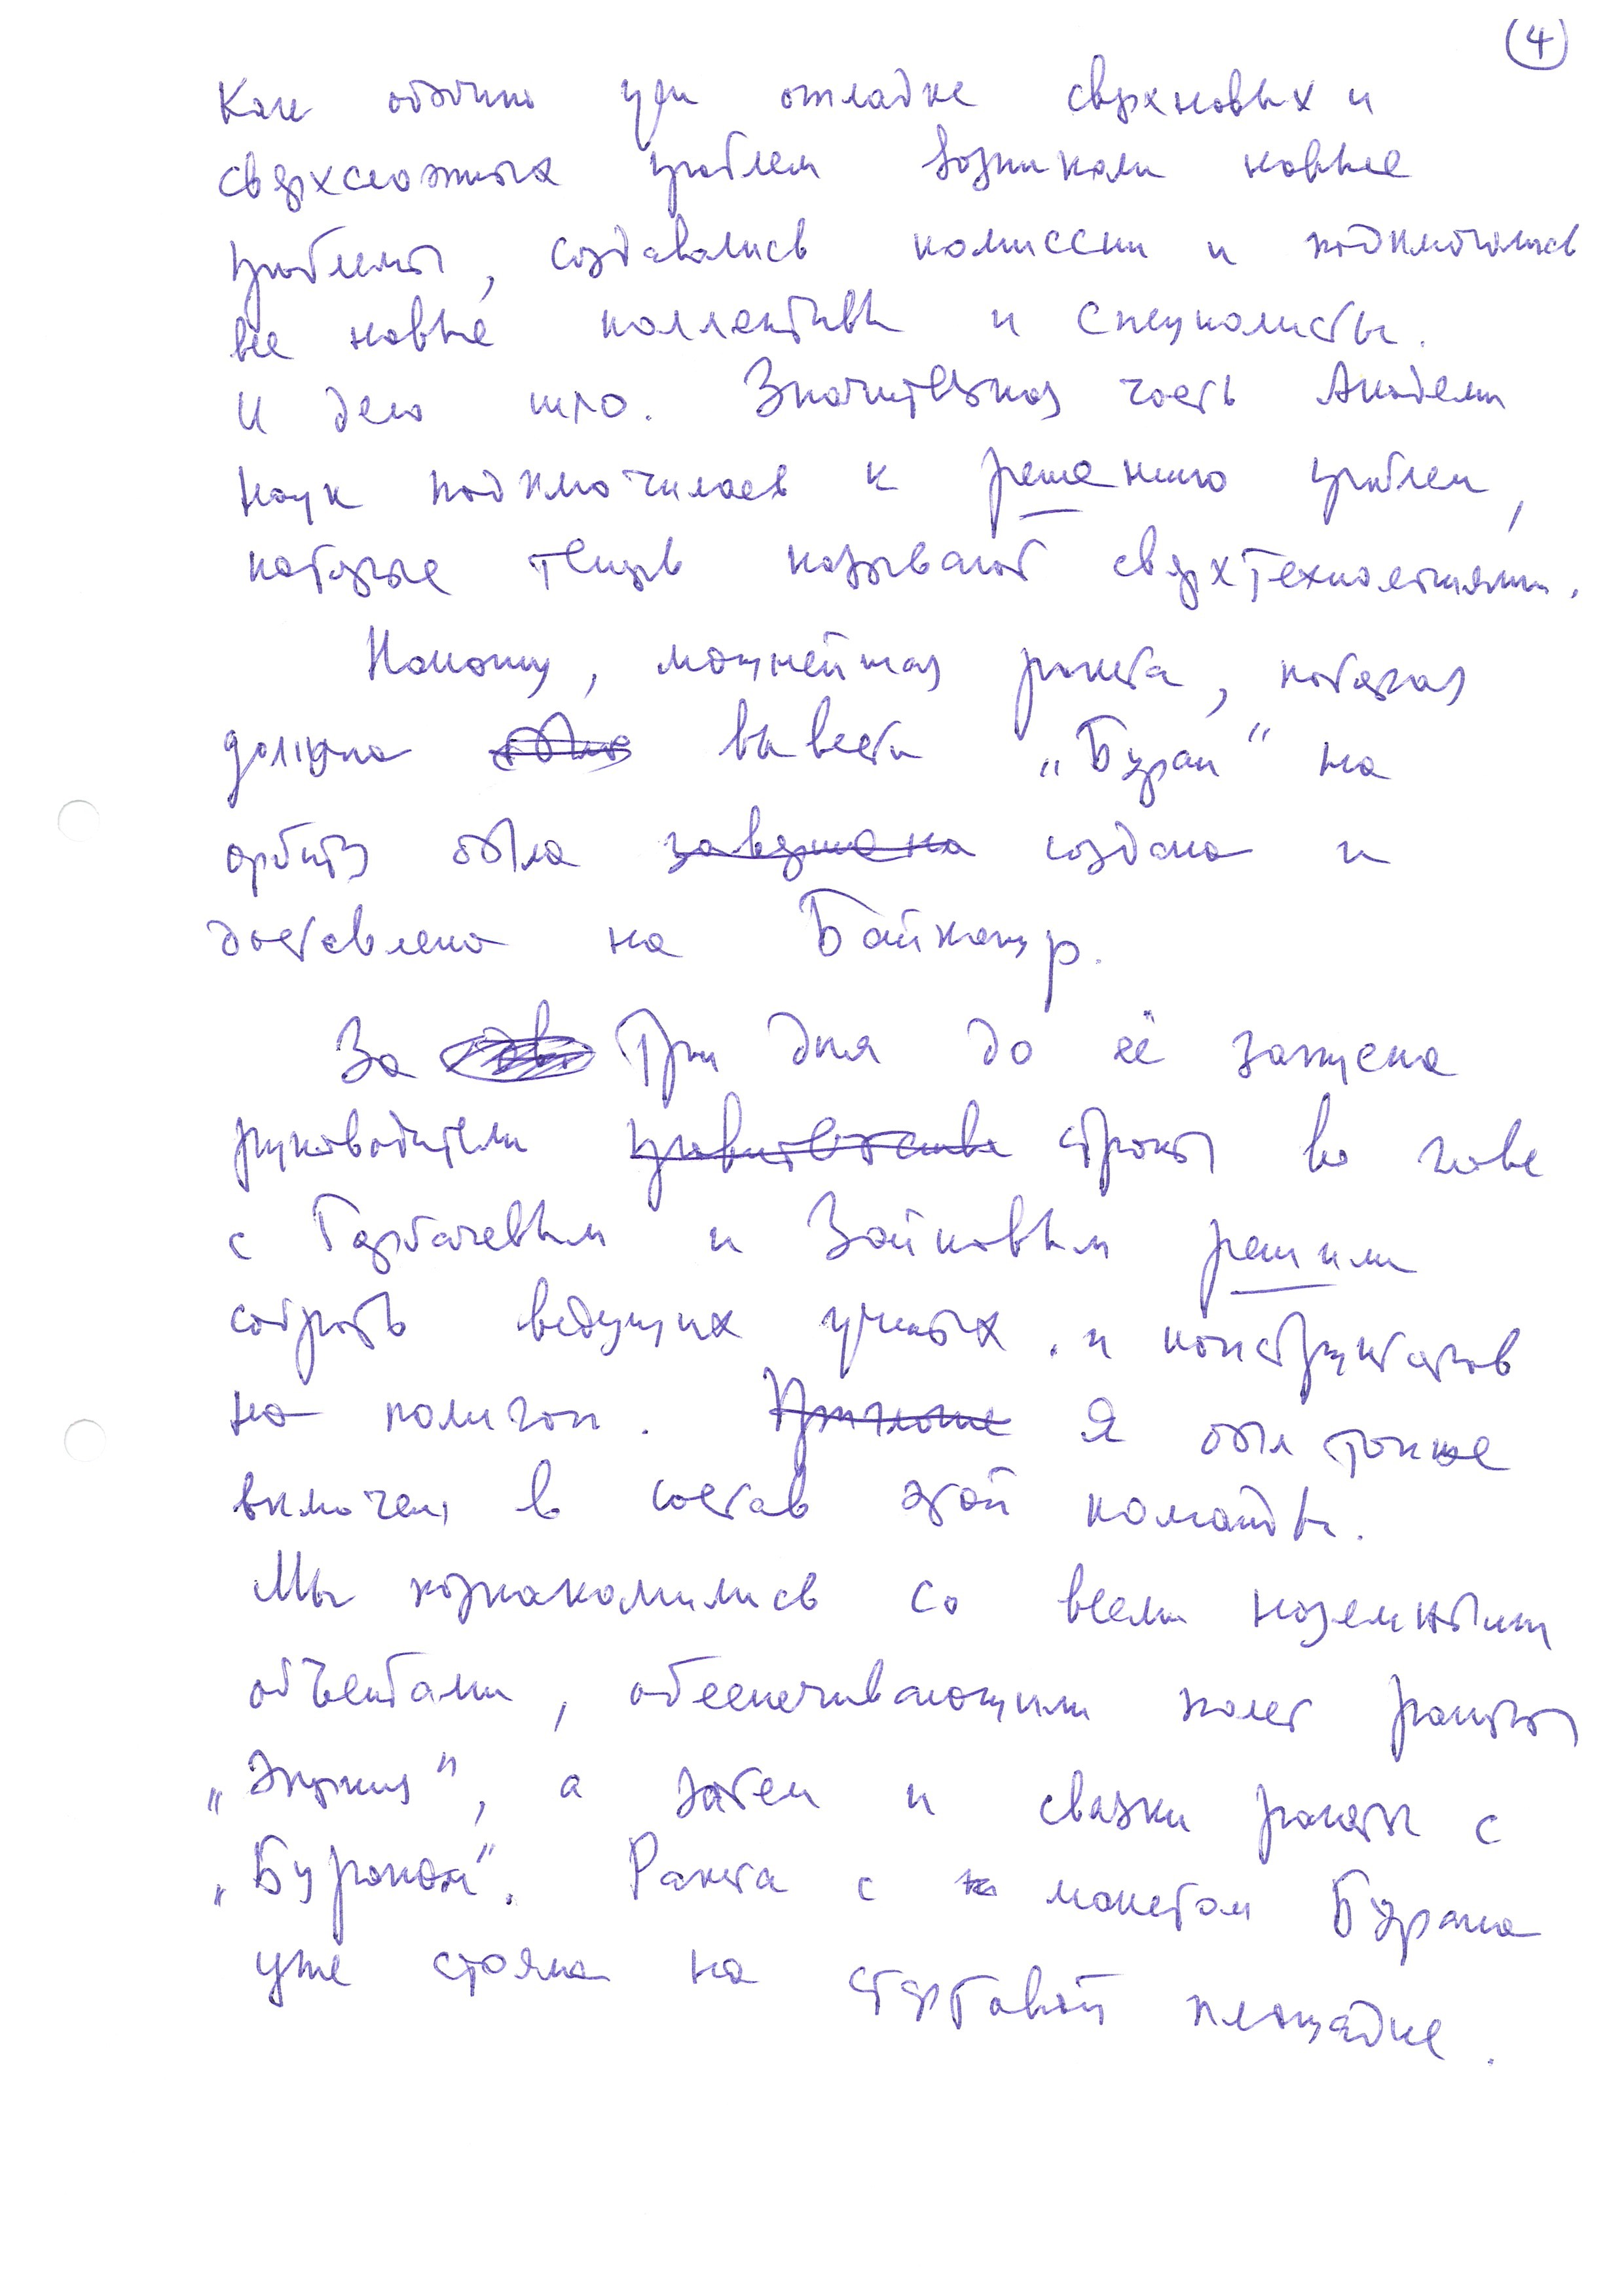 (4)
Как обычно при отладке сверхновых и
сверхсложных проблем возникали новые
проблемы, создавались комиссии и подключались
все новые коллективы и специалисты.
И дело шло. Значительная часть Академии
Наук подключилась к решению проблем,
которые теперь называют сверхтехнологиями.
Наконец, мощнейшая ракета, которая
должна была вывести „Буран“ на
орбиту была завершена создана и
доставлена на Байконур.
За три дня до её запуска
руководители правительства страны во главе
с Горбачевым и Зайковым решили
собрать ведущих ученых и конструкторов
на полигон. Я был также
включен в состав этой команды.
Мы познакомились со всеми наземными
объектами, обеспечивающими полет ракеты
„Энергия“, а затем и связки ракеты с
„Бураном“. Ракета с макетом Бурана
уже стояла на стартовой площадке.